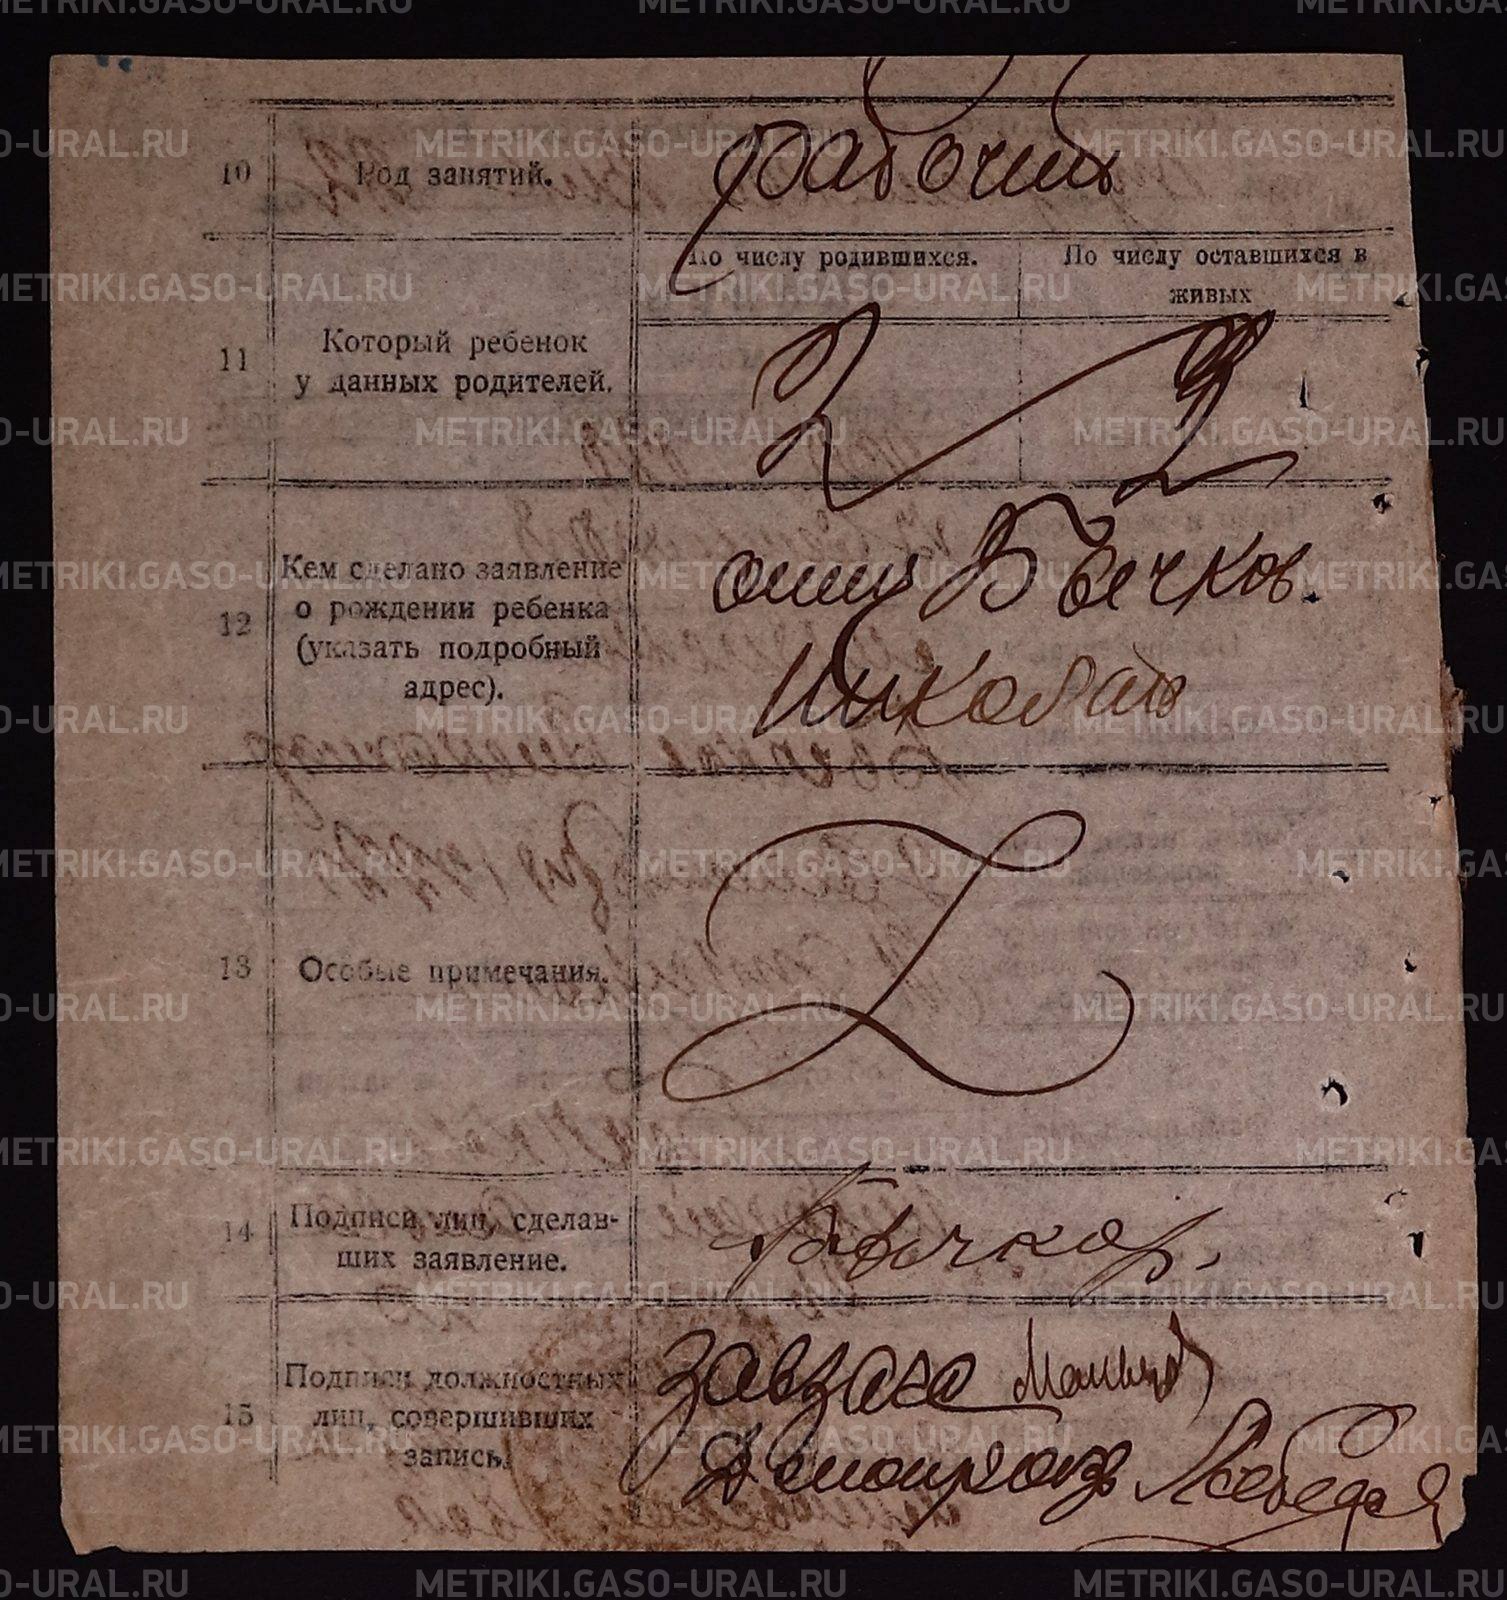 10 Род занятий. рабочий
По числу родившихся. По числу оставшихся в
живых
11 Который ребенок
у данных родителей.
2 2
12 Кем сделано заявление
о рождении ребенка
(указать подробный
адрес).
отец Бычков.
Николай
13 Особые примечания.
14 Подписи лиц, сделав-
ших заявление.
Бычков.
15 Подписи должностных
лиц, совершивших
запись.
Завзагс
Делопроизв Лебедев
METRIKI.GASO-URAL.RU